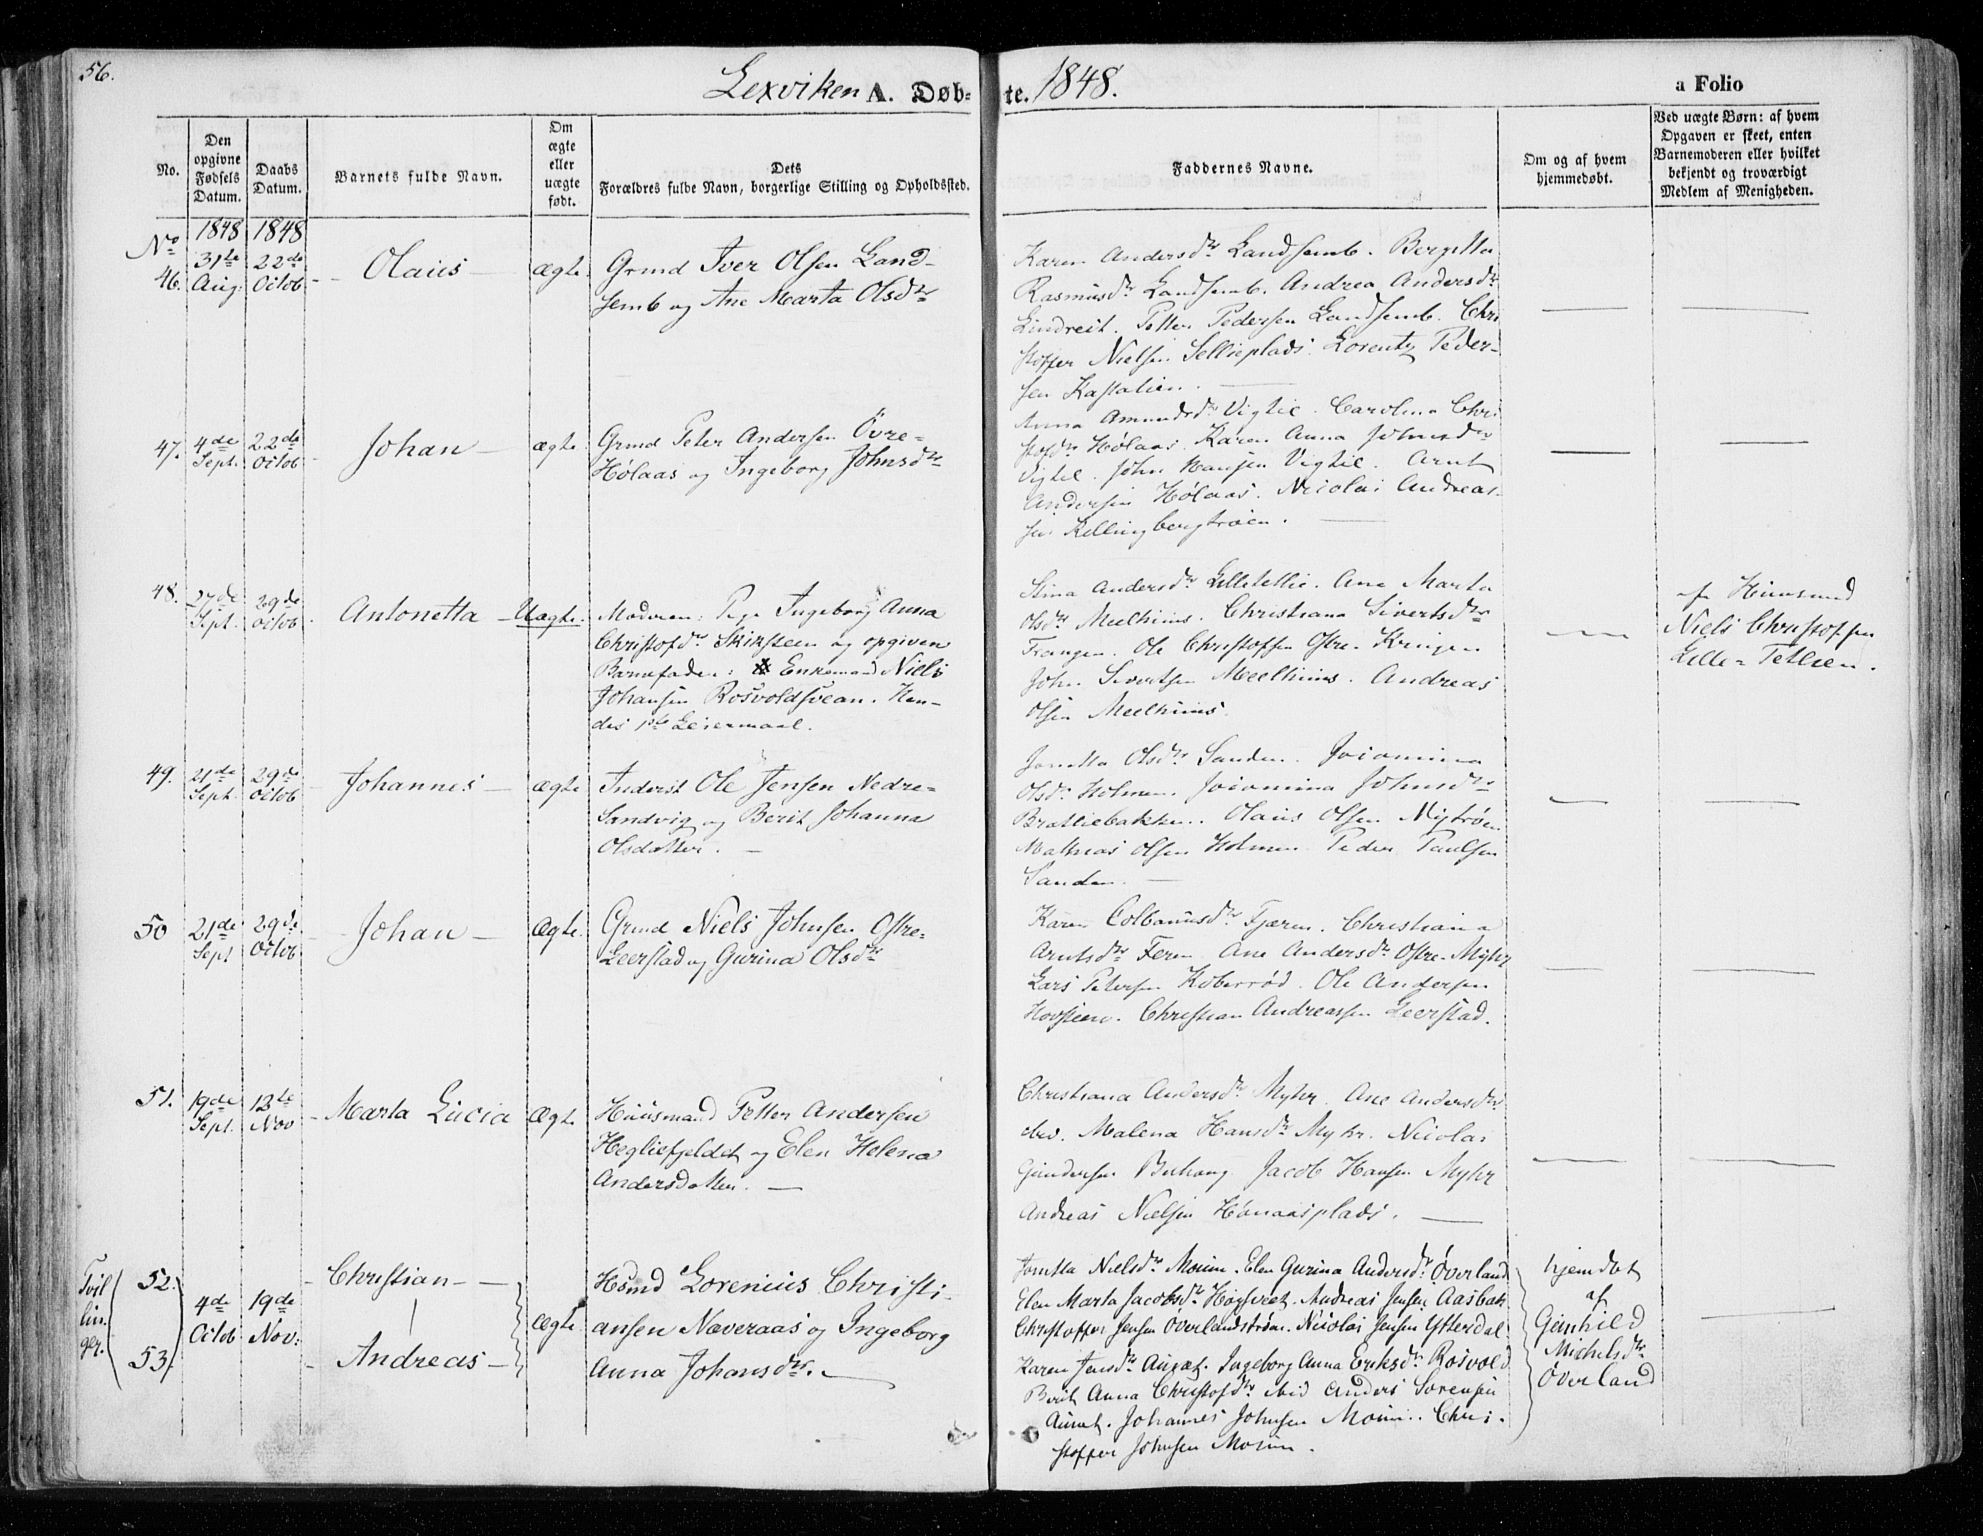 56.
Lexviken A. Døb=
te. 1848.
a Folio
No.
Den opgivne Fødsels Datum.
Daabs Datum.
Barnets fulde Navn.
Om ægte eller uægte født.
Dets
Forældres fulde Navn, borgerlige Stilling og Opholdssted.
Faddernes Navne.
Om og af hvem hjemmedøbt.
Ved uægte Børn: af hvem Opgaven er skeet, enten Barnemoderen eller hvilket bekjendt og troværdigt Medlem af Menigheden.
No 1848 1848
46. 31te Aug. 22de Octob. Olaus ægte.
Grmd Iver Olsen Land-
semb og Ane Marta Olsdtr
Karen Andersdtr Landsemb. Bergitta
Rasmusdtr Landsemb. Andrea Andersdtr
Lindreit. Petter Pedersen Landsemb. Chri
stoffer Nielsen Sellieplads. Lorentz Peder-
sen Kastalien.
47. 4de Sept. 22de Octob Johan ægte.
Grmd Peter Andersen Övre=
Hølaas og Ingeborg Johnsdtr
Anna Amundsdtr Vigtil. Carolina Chri
stofdtr Hølaas. Karen Anna Johnsdtr
Vigtil. John Hansen Vigtil. Arnt
Andersen Hølaas. Nicolai Andreas-
sen Killingbergtrøen.
48. 27de Sept. 29de Octob. Antonetta Uægte.
Moderen: Pige Ingeborg Anna
Christofdtr Skirsteen og opgiven
Barnefader: Enkemand Niels
Johansen Rosvoldsvean. Hen-
des 1ste Leiermaal.
Stina Andersdtr Lilletellie. Ane Marta
Olsdtr Meelhuus. Christiana Sivertsdtr
Frangen. Ole Christoffersen Østre Kringen
John Sivertsen Meelhuus. Andreas
Olsen Meelhuus.
af Huusmand
Niels Christoffersen
Lille=Tellien.
49. 21de Sept. 29de Octob Johannes ægte
Inderst Ole Jensen Nedre=
Sandvig og Berit Johanna
Olsdatter.
Jonetta Olsdtr Sanden. Joiomina
Olsdtr Holmen. Joiomina Johnsdtr
Bratliebakken. Olaus Olsen Nytrøen
Mathias Olsen Holmen. Peder Paulsen
Sanden.
50 21de Sept 29de Octob Johan ægte.
Grmd Niels Johnsen Østre=
Leerstad og Gurina Olsdtr
Karen Colbanusdtr Fjæren. Christiana
Arntsdtr Feren. Ane Andersdtr Østre-Myhr
Lars Petersen Koberrød. Ole Andersen
Hovsteen. Christian Andreassen Leerstad.
51. 19de Sept. 12te Nov Marta Lucia Ægte
Huusmand Petter Andersen
Hegliefjeldet og Elen Helena
Andersdatter.
Christiana Andersdtr Myhr. Ane Andersdtr
ibid. Malena Hansdtr Myhr. Nicolai
Gundersen Buhaug. Jacob Hansen Myhr
Andreas Nielsen Hønaasplads.
Tvil
lin-
ger.
52. 53. 4de Octob 19de Nov. Christian
Andreas
ægte
Hsmd Lorenius Christi-
ansen Naveraas og Ingeborg
Anna Johansdtr.
Jonetta Nielsdtr Moum. Elen Gurina Andersdtr Överland
Elen Marta Jacobsdtr Hogsveet. Andreas Jensen Aasbak
Christoffer Jensen Överlandstrøen. Nicolai Jensen Ytterdal.
Karen Jensdtr Aunet. Ingeborg Anna Eriksdtr Rosvold
Berit Anna Christofdtr ibid Anders Sorensen
Aunet. Johannes Johnsen Moum. Chri-
stoffer Johnsen Moum.
hjemdøbt
af
Gunhild
Michelsdtr
Överland